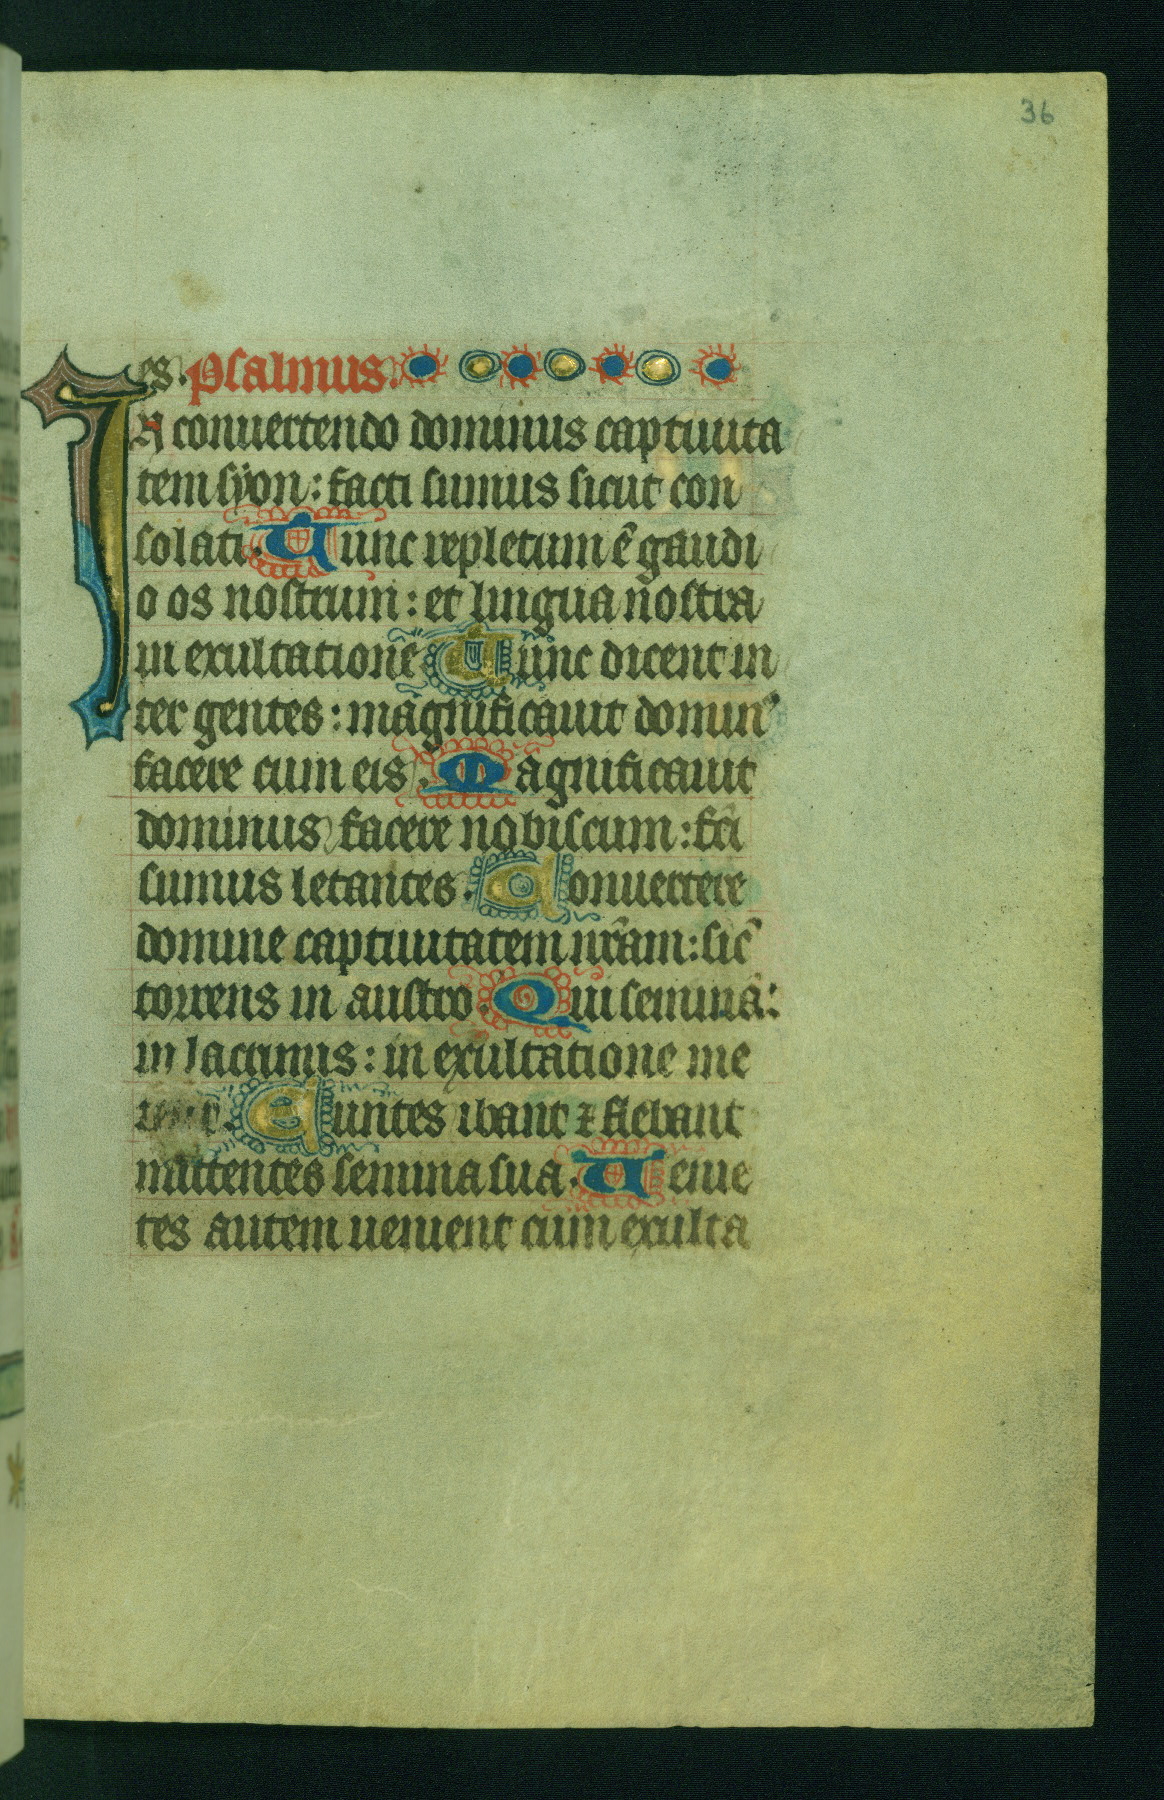 36
es. psalmus.
In conuertendo dominus captiuita
tem syon: facti sumus sicut con
solati. Tunc repletum ē gaudi
o os nostrum: et lingua nostra
in exultatione Tunc dicent in
ter gentes: magnificauit domin᷒
facere cum eis. Magnificauit
dominus facere nobiscum: fc̄i
sumus letantes. Conuertere
domine captiuitatem nr̄am: sic̄
torrens in austro. Qui seminā:
in lacrimis: in exultatione me
Euntes ibant ⁊ flebant
mittentes semina sua. Uenie
tes autem uenient cum exulta